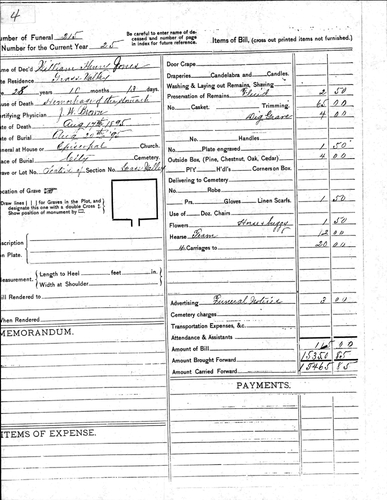 4
Number of Funeral 215
Number for the Current Year 25
Be careful to enter name of deceased and number of page in index for future reference.
Name of Dec'd William Henry Jones
Residence Grass Valley
28 years 10 months 13 days
Cause of Death Hemorhage of the
Certifying Physician J W Brown
Date of Death Aug 17th 1895
Date of Burial Aug
Funeral at House or Episcopal Church.
Place of Burial City Cemetery.
Grave or Lot No. of Section No. Grass Valley
Location of Grave
Draw lines ( ) for Graves in the Plot, and designate this one with a double Cross
Show position of monument by
Inscription on Plate.
Measurement. Length to Heel feet in.
Width at Shoulder
Bill Rendered to
When Rendered
MEMORANDUM.
ITEMS OF EXPENSE.
Items of Bill, (cross out printed items not furnished.)
Door Crape
Draperies Candelabra and Candles.
Washing & Laying out Remains, Shaving
Preservation of Remains Fluid 2 50
No. Casket. Trimming. 65 00
Dig Grave 4 00
No. Handles
Plate engraved 1 50
Outside Box, (Pine, Chestnut, Oak, Cedar) 4 00
PIY H'd's Corners on Box.
Delivering to Cemetery
No. Robe
Prs. Gloves Linen Scarfs. 1 50
Use of Doz. Chair
Flowers 1 50
Hearse Team 12 00
4 Carriages to 20 00
Advertising Funeral Notice 3 00
Cemetery charges
Transportation Expenses, &c.
Attendance & Assistants
Amount of Bill 115 00
Amount Brought Forward 15350 85
Amount Carried Forward 15465 85
PAYMENTS.